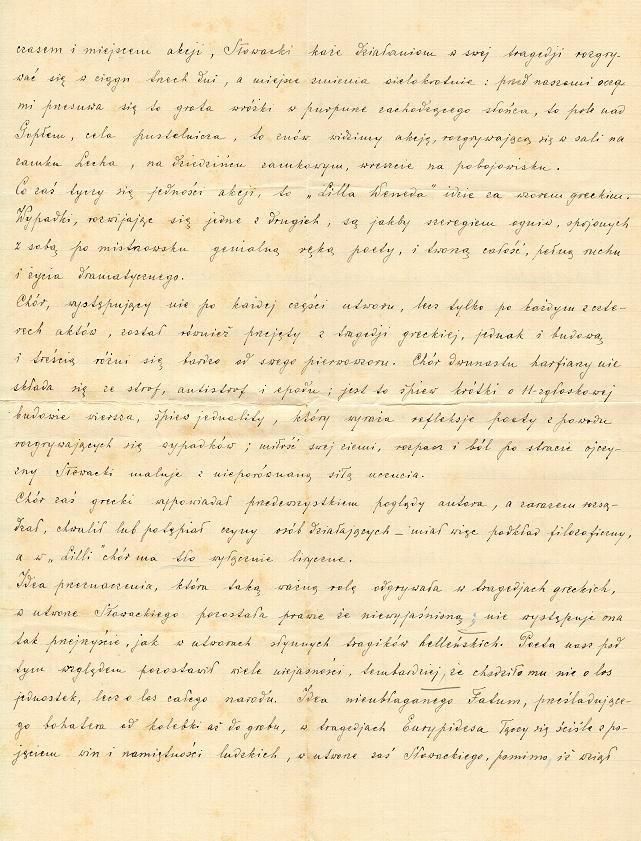 czasem i miejscem akcji, Słowacki każe działaniom w swej tragedji rozgry-
wać się w ciągu trzech dni, a miejsce zmienia wielokrotnie: przed naszemi ocza
mi przesuwa się to grota wróżki w purpurze zachodzącego słońca, to pole nad
Gopłem, cela pustelnicza, to znów widzimy akcję, rozgrywającą się w sali na
zamku Lecha, na dziedzińcu zamkowym, wreszcie na pobojowisku.
Co zaś tyczy się jedności akcji, to „Lilla Weneda" idzie za wzorem greckim.
Wypadki, rozwijając się jedne z drugich, są jakby szeregiem ogniw, spojonych
z sobą po mistrzowsku genialną ręką poety, i tworzą całość, pełną ruchu
i życia dramatycznego.
Chór, występujący nie po każdej części utworu, lecz tylko po każdym z czte-
rech aktów, został również przejęty z tragedji greckiej, jednak i budową
i treścią różni się bardzo od swego pierwowzoru. Chór dwunastu harfiarzy nie
składa się ze strof, antistrof i epodu; jest to śpiew krótki o 11-zgłoskowej
budowie wiersza, śpiew jednolity, który wyraża refleksje poety z powodu
rozgrywających się wypadków; miłość swej ziemi, rozpacz i ból po stracie ojczy-
zny Słowacki maluje z nieporównaną siłą uczucia.
Chór zaś grecki wypowiadał przedewszystkiem poglądy autora, a zarazem rozsą-
dzał, chwalił lub potępiał czyny osób działających – miał więc podkład filozoficzny,
a w „Lilli" chór ma tło wyłącznie liryczne.
Idea przeznaczenia, która taką ważną rolę odgrywała w tragedjach greckich,
w utworze Słowackiego pozostała prawie że niewyjaśnioną; nie występuje ona
tak przejrzyście, jak w utworach słynnych tragików helleńskich. Poeta nasz pod
tym względem pozostawił wiele niejasności, tembardziej, że chodziło mu nie o los
jednostek, lecz o los całego narodu. Idea nieubłaganego Fatum, prześladujące-
go bohatera od kolebki aż do grobu, w tragedjach Eurypidesa łączy się ściśle z po-
jęciem win i namiętności ludzkich, w utworze zaś Słowackiego, pomimo, iż wziął